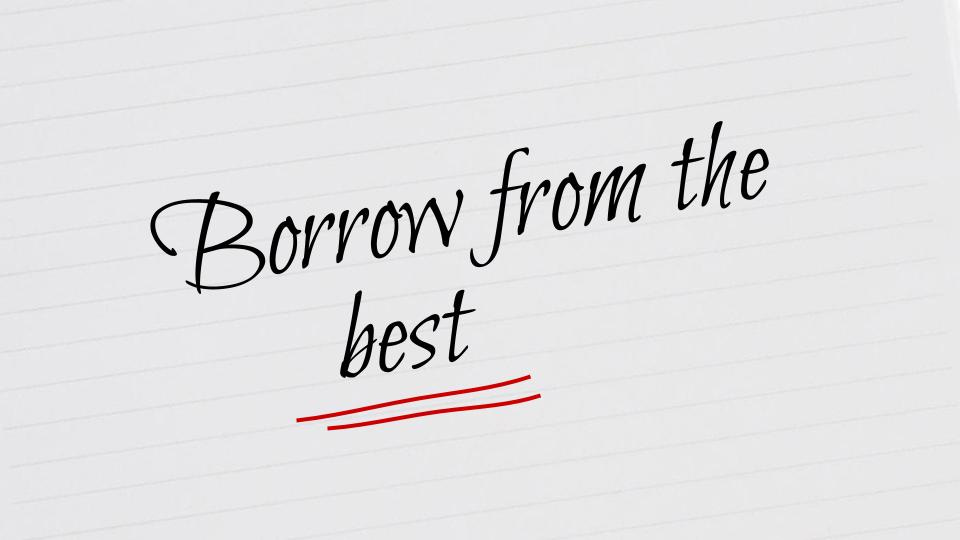 Borrow from the
best